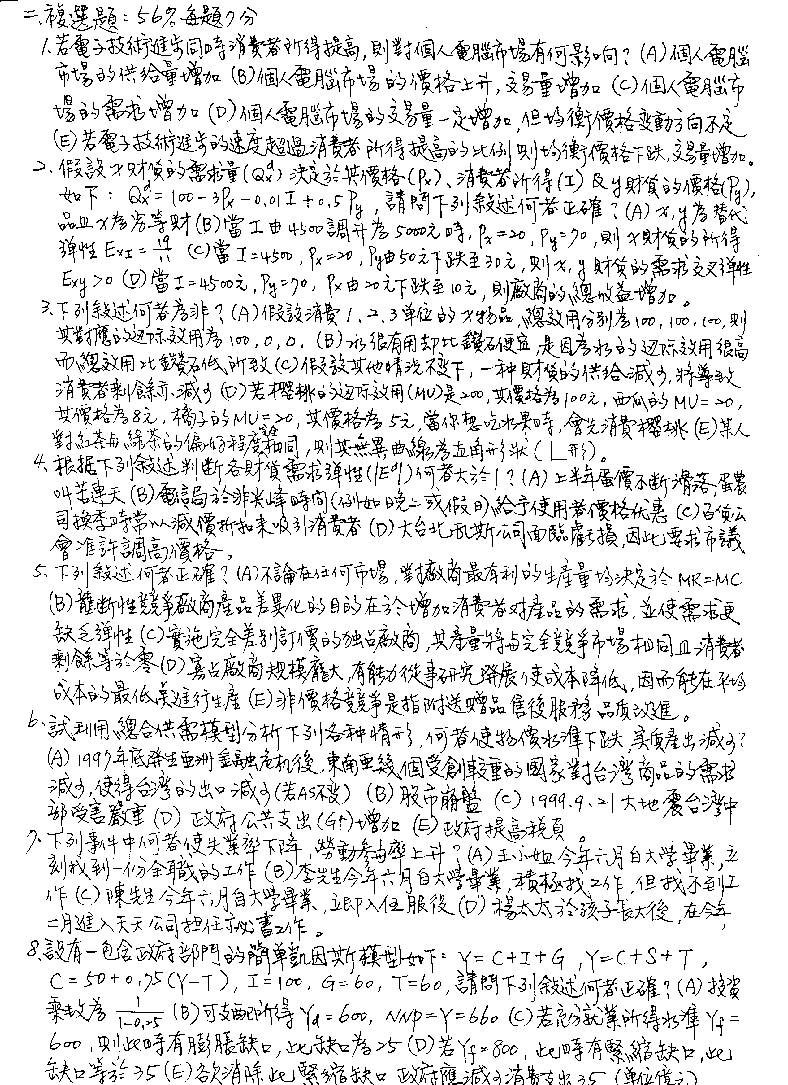 二、複選題：56% 每題7分
1.若電子技術進步同時消費者所得提高，則對個人電腦市場有何影响？(A)個人電腦
市場的供給量增加 (B)個人電腦市場的價格上升，交易量增加 (C)個人電腦市
場的需求增加 (D)個人電腦市場的交易量一定增加，但均衡價格變動方向不定
(E)若電子技術進步的速度超過消費者所得提高的比例則均衡價格下跌，交易量增加。
2、假設X財貨的需求量(Qxd)決定於其價格(Px)、消費者所得(I)及y財貨的價格(Py)，
如下：Qxd=100-3Px-0.01I+0.5Py，請問下列敘述何者正確？(A)x,y為替代
品且X為劣等財(B)當I由4500調升為5000元時，Px=20，Py=70，則X財貨的所得
彈性 EXI= (C)當I=4500，Px=20，Py由50元下跌至30元，則x,y財貨的需求交叉彈性
Exy>0 (D)當I=4500元，Py=70，Px由20元下跌至10元，則廠商的總收益增加。
3、下列敘述何者為非？(A)假設消費1、2、3單位的X物品，總效用分別為100,100,100,則
其對應的边际效用為100,0,0. (B)水很有用却比鑽石便宜，是因為水的边际效用很高
而總效用比鑽石低所致(C)假設其他情況不变下，一种財貨的供给減少，將導致
消費者剩餘亦減少(D)若櫻桃的边际效用(MU)是200，其價格為100元，西瓜的MU=20，
其價格為8元，橘子的MU=20，其價格為5元，當你想吃水果時，會先消費櫻桃(E)某人
對紅茶与綠茶的偏好程度完全相同，則其無異曲線為直角形狀(L形)。
4、根據下列敘述判斷各財貨需求彈性(|Ed|)何者大於1？(A)上半年蛋價不斷滑落，蛋農
叫苦連天(B)電信局於非尖峰時間(例如晚上或假日)給予使用者價格优惠(C)百貨公
司換季時常以減價折扣來吸引消費者(D)大台北瓦斯公司面臨虧損，因此要求市議
會准許調高價格。
5、下列敘述何者正確？(A)不論在任何市場，對廠商最有利的生產量均決定於MR=MC
(B)壟斷性競爭廠商產品差異化的目的在於增加消費者对產品的需求，並使需求更
缺乏彈性(C)實施完全差別訂價的独占廠商，其產量將与完全競爭市場相同且消費者
剩餘等於零(D)寡占廠商規模龐大，有能力從事研究發展使成本降低，因而能在平均
成本的最低點進行生產(E)非價格競爭是指附送贈品售後服務品質改進。
6、試利用總合供需模型分析下列各种情形，何者使物價水準下跌，實質產出減少？
(A)1997年底發生亞洲金融危机後，東南亞幾個受創較重的國家對台灣商品的需求
減少，使得台灣的出口減少(若AS不变) (B)股市崩盤 (C) 1999.9.21大地震台灣中
部受害嚴重(D) 政府公共支出(G↑)增加 (E)政府提高稅負。
7、下列事件中何者使失業率下降，勞動參与率上升？(A)王小姐今年六月自大學畢業，立
刻找到一份全職的工作(B)李先生今年六月自大學畢業，積極找工作，但找不到工
作(C)陳先生今年六月自大學畢業，立即入伍服役(D)楊太太於孩子長大後，在今年
二月進入天天公司担任秘書工作。
8、設有一包含政府部門的簡單凱因斯模型如下：Y=C+I+G，Y=C+S+T，
C=50+0.75(Y-T)，I=100，G=60，T=60，請問下列敘述何者正確？(A)投資
乘数為 1/1-0.75 (B)可支配所得Yd=600，NNP=Y=660 (C)若充分就業所得水準Yf=
600，則此時有膨脹缺口，此缺口為25(D)若Yf=800，此時有緊縮缺口，此
缺口等於35(E)欲消除此緊縮缺口 政府應減少消費支出35 (單位億元)